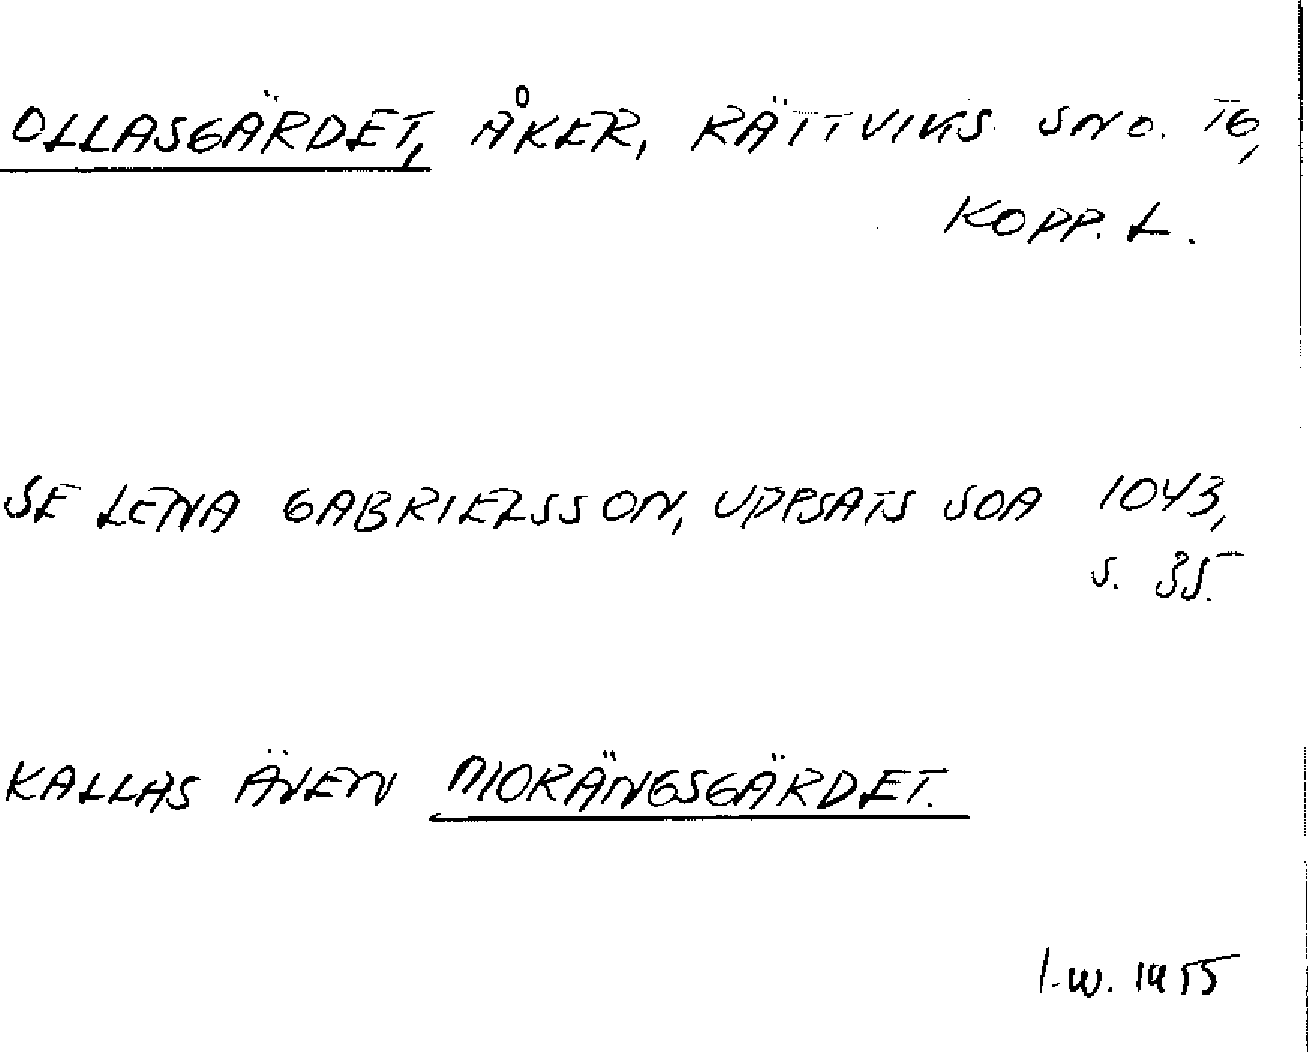 OLLASGÄRDET, ÅKER, RÄTTVIKS SND. TG,
KOPP. L.
SE LENA GABRIELSSON, UPPSATS SOA 1043,
S. 35.
KALLAS ÄVEN MORÄNGSGÄRDET.